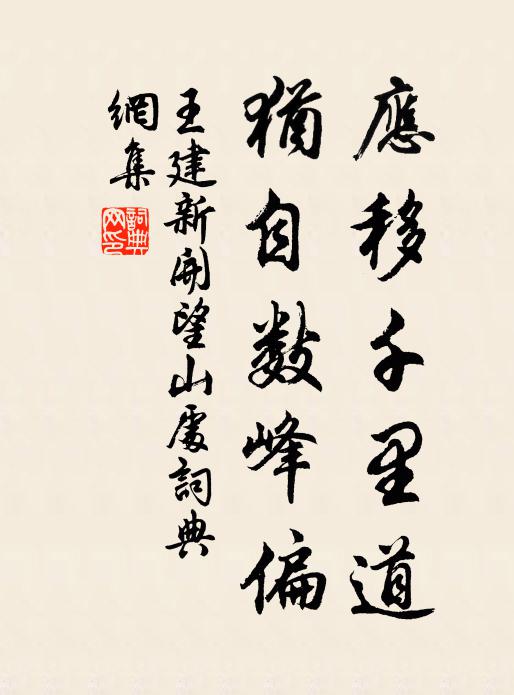 應移千里道
猶自數峰偏
王建新開望山處詞典
網集
詞典
网印